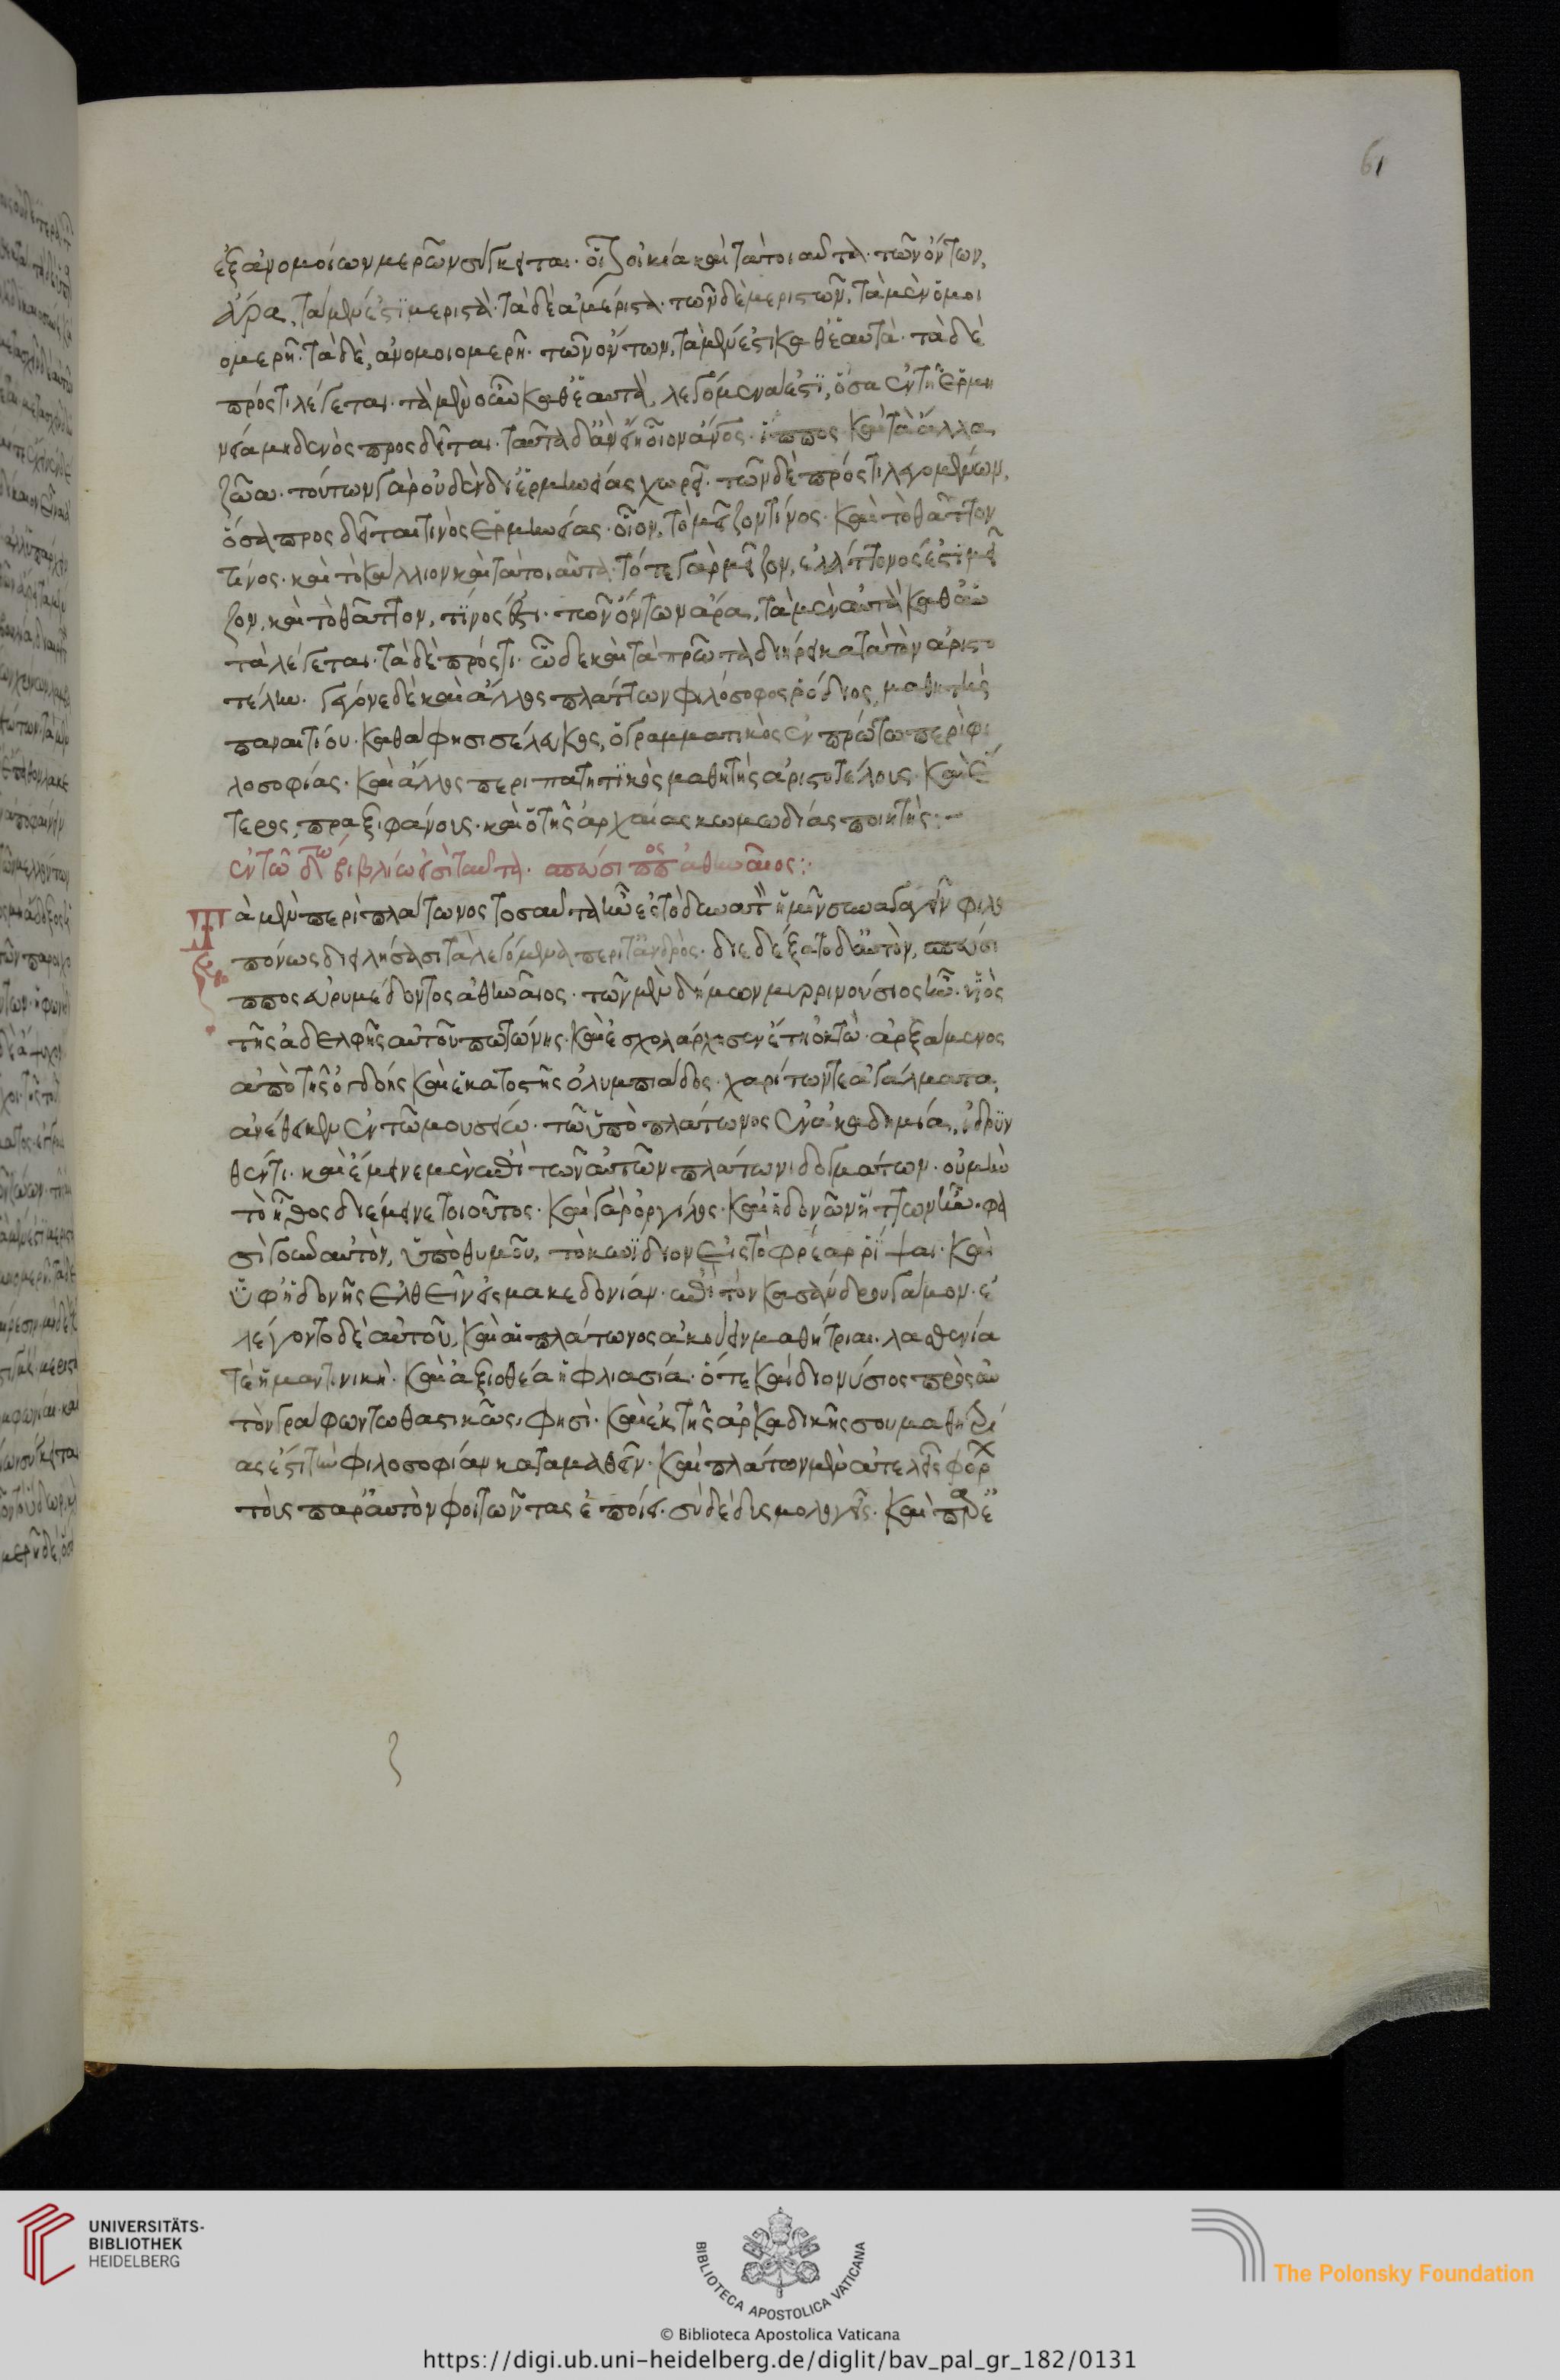 ἐξ ἀνομοίων μερῶν σύγκειται· οἷον οἰκία καὶ τὰ τοιαῦτα· τῶν ὄντων,
ἄρα, τὰ μέν ἐστι μεριστὰ· τὰ δὲ ἀμέριστα· τῶν δὲ μεριστῶν, τὰ μὲν ὁμοι
ομερῆ· τὰ δὲ, ἀνομοιομερῆ· τῶν ὄντων, τὰ μέν ἐστι καθ' ἑαυτὰ· τὰ δὲ
πρός τι λέγεται· τὰ μὲν οὖν καθ' ἑαυτὰ, λεγόμενα ἐστὶ, ὅσα ἐν τῇ ἑρμη
νεία μηδενὸς προσδεῖται· ταῦτα δ' ἂν εἴη οἷον ἄνος· ἵππος καὶ τὰ ἄλλα
ζῶα· τούτων γὰρ οὐδὲν δι' ἑρμηνείας χωρεῖ· τῶν δὲ πρός τι λεγομένων,
ὅσα προσδεῖται τινὸς ἑρμηνείας· οἷον, τὸ μεῖζον τίνος· καὶ τὸ θᾶττον
τίνος· καὶ τὸ κάλλιον καὶ τὰ τοιαῦτα· τό τε γὰρ μεῖζον, ἐλάττονός ἐστι μεῖ
ζον, καὶ τὸ θᾶττον, τίνός ἐστι· τῶν ὄντων ἄρα, τὰ μὲν αὐτὰ καθ' αὑ
τὰ λέγεται· τὰ δὲ πρός τι· ὧδε καὶ τὰ πρῶτα διήρει κατὰ τὸν ἀριστο
τέλην· γέγονε δὲ καὶ ἄλλος πλάτων φιλόσοφος ῥόδιος, μαθητὴς
παναιτίου· καθά φησι σέλευκος, ὁ γραμματικὸς ἐν πρώτω περὶ φι
λοσοφίας· καὶ ἄλλος περιπατητικὸς μαθητὴς ἀριστοτέλους· καὶ ἕ
τερος, πραξιφάνους· καὶ ὁ τῆς ἀρχαίας κωμωδίας ποιητής:-
ἐν τῶ δτω βιβλίω εἰσὶ ταῦτα· σπεύσιππος ἀθηναῖος:·
Τὰ μὲν περὶ πλάτωνος τοσαῦτα ἦν ἐς τὸ δυνατὸν ἡμῖν συναγαγεῖν φιλο
πόνως διειλήσασι τὰ λεγόμενα περὶ τἀνδρός· διεδέξατο δ' αὐτὸν, σπεύσι
ππος εὐρυμέδοντος ἀθηναῖος· τῶν μὲν δήμων μυρρινούσιος ἦν· υἱὸς
τῆς ἀδελφῆς αὐτοῦ πωτώνης· καὶ ἐσχολάρχησεν ἔτη ὀκτὼ· ἀρξάμενος
ἀπὸ τῆς ὀγδόης καὶ ἑκατοστῆς ὀλυμπιάδος· χαρίτων τε ἀγάλματα,
ἀνέθηκεν ἐν τῶ μουσείω· τῶ ὑπὸ πλάτωνος ἐν ἀκαδημία, ἱδρυν
θέντι· καὶ ἔμεινε μὲν ἐπὶ τῶν αὐτῶν πλάτωνι δογμάτων· οὐ μὴν
τὸ ἦθος διέμεινε τοιοῦτος· καὶ γὰρ ὀργίλος· καὶ ἡδονῶν ἥττων ἦν· φα
σὶ γοῦν αὐτὸν, ὑπὸ θυμοῦ, τὸ κυνίδιον εἰς τὸ φρέαρ ῥῖψαι· καὶ
ὑφ' ἡδονῆς ἐλθεῖν εἰς μακεδονίαν· ἐπὶ τὸν κασάνδρου γάμον· ἐ
λέγοντο δὲ αὐτοῦ, καὶ αἱ πλάτωνος ἀκούειν μαθήτριαι· λασθενία
τε ἡ μαντινικὴ· καὶ ἀξιοθέα ἡ φλιασία· ὅτε καὶ διονύσιος πρὸς αὐ
τὸν γράφων τωθαστικῶς, φησὶ· καὶ ἐκ τῆς ἀρκαδικῆς σου μαθητρί
ας ἔστι τὴν φιλοσοφίαν καταμαθεῖν· καὶ πλάτων μὲν ἀτελεῖς φόρ
τοὺς παρ' αὐτὸν φοιτῶντας ἐποίει· σὺ δὲ δασμολογεῖς· καὶ πα